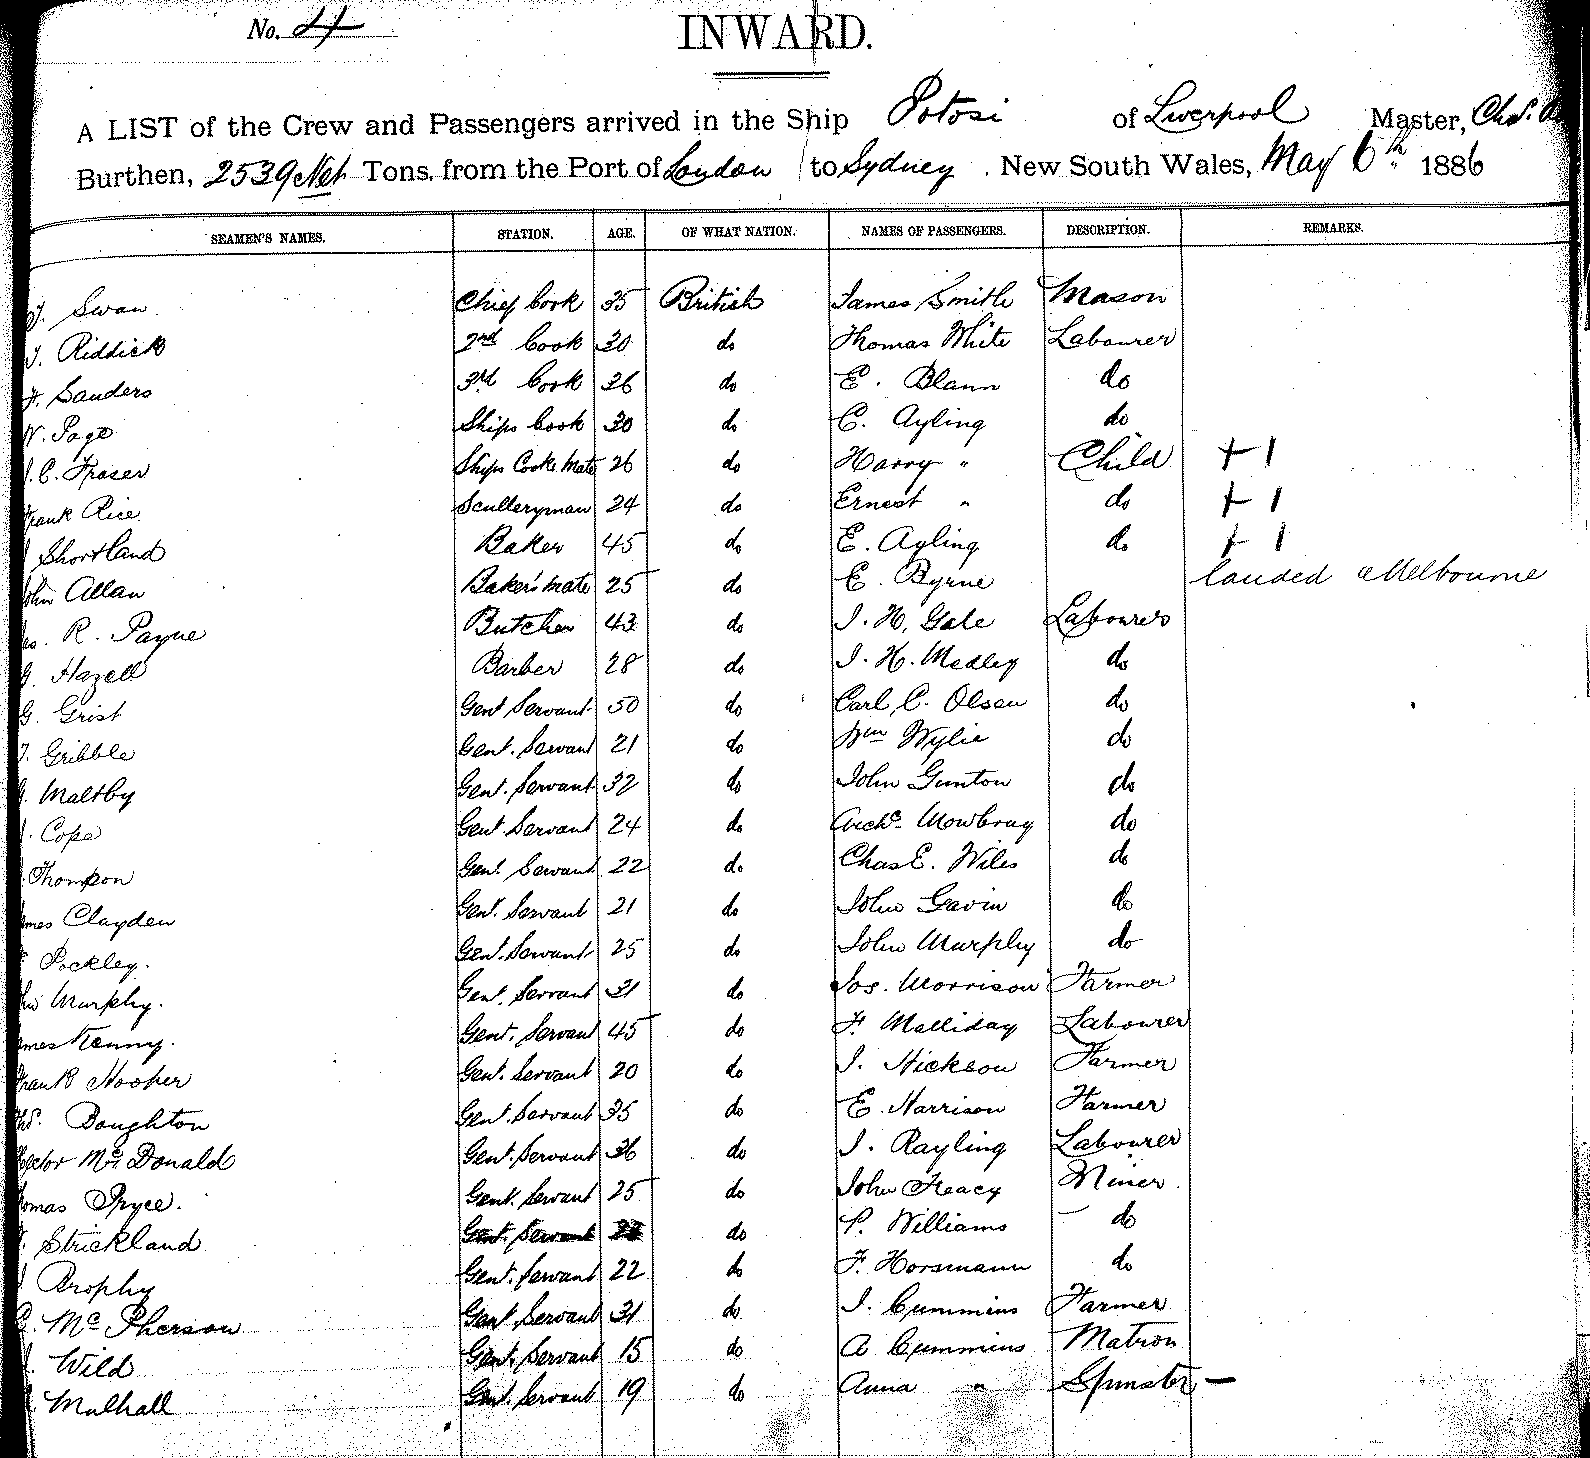 No. 4
INWARD.
A LIST of the Crew and Passengers arrived in the Ship Potosi of Liverpool Master, Chs.
Burthen, 2539 Net Tons, from the Port of London to Sydney. New South Wales, May 6th 1886
SEAMEN'S NAMES. STATION. AGE. OF WHAT NATION. NAMES OF PASSENGERS. DESCRIPTION. REMARKS.
J. Swan Chief Cook 35 British James Smith Mason
J. Riddick 2nd Cook 30 do Thomas White Labourer
F. Sanders 3rd Cook 26 do E. Blann do
W. Page Ships Cook 30 do C. Ayling do
C. Fraser Ships Cooks Mate 26 do Harry " Child + 1
Frank Rice Sculleryman 24 do Ernest " do + 1
Shortland Baker 45 do E. Ayling do + 1
John Allan Baker's Mate 25 do E. Byrne landed Melbourne
R. Payne Butcher 43 do J. H. Gale Labourer
G. Hazell Barber 28 do J. H. Medley do
G. Grist Gent Servant 50 do Carl C. Olsen do
J. Gribble Gent. Servant 21 do Wm Wylie do
Maltby Gent. Servant 32 do John Gunton do
Cope Gent Servant 24 do Archd. Mowbray do
Thompson Gent. Servant 22 do Chas E. Wiles do
James Clayden Gent. Servant 21 do John Gavin do
Pockley. Gent. Servant 25 do John Murphy do
Murphy. Gent. Servant 31 do Jos. Morrison Farmer
James Kenny. Gent. Servant 45 do F. Malliday Labourer
Frank Hooper Gent. Servant 20 do J. Hickson Farmer
Thos. Boughton Gent. Servant 35 do E. Harrison Farmer
Hector McDonald Gent. Servant 36 do J. Rayling Labourer
Thomas Pryce. Gent. Servant 25 do John Feacy Miner
Strickland Gent. Servant do P. Williams do
Brophy Gent. Servant 22 do F. Horsmann do
McPherson Gent Servant 31 do J. Cummins Farmer
Wild Gent. Servant 15 do A Cummins Matron
Mulhall Gent. Servant 19 do Anna " Spinster –